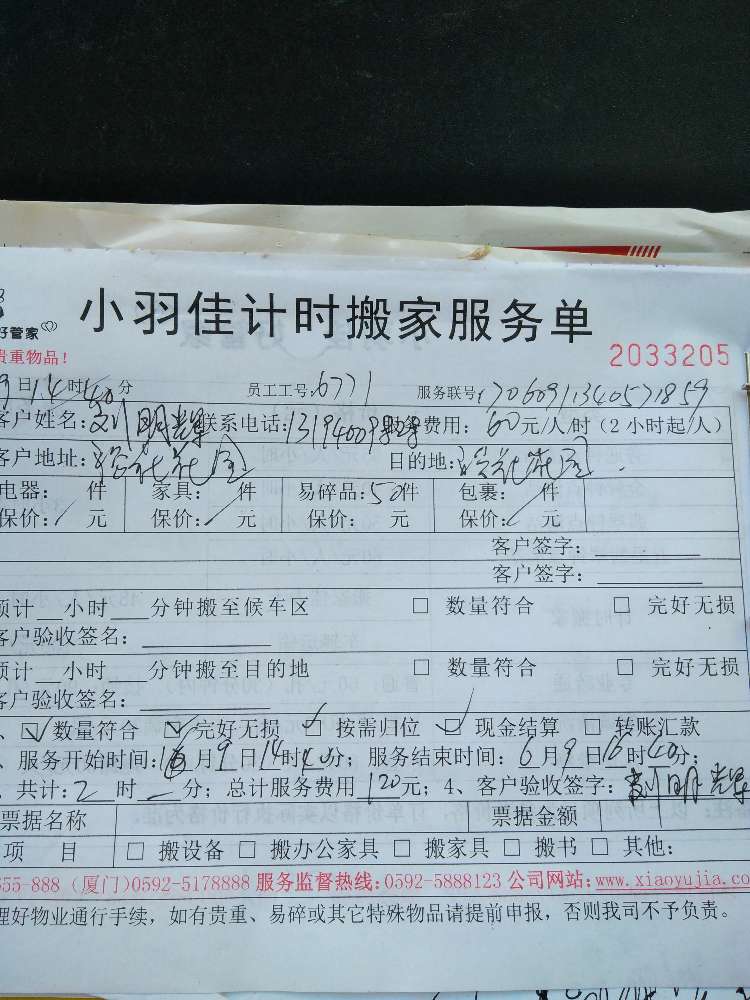 小羽佳计时搬家服务单
好管家
贵重物品！
2033205
9日14时40分 员工工号：6771 服务联号：
客户姓名：刘明辉 联系电话： 费用：60元/人/时（2小时起/人）
客户地址： 目的地：
电器： 件 家具： 件 易碎品：50件 包裹： 件
保价：/ 元 保价：/ 元 保价： 元 保价：/ 元
客户签字：
客户签字：
预计__小时__分钟搬至候车区 □ 数量符合 □ 完好无损
客户验收签名：
预计__小时__分钟搬至目的地 □ 数量符合 □ 完好无损
客户验收签名：
、☑数量符合 ☑完好无损 ☑按需归位 ☑现金结算 □ 转账汇款
、服务开始时间：6月9日14时40分；服务结束时间：6月9日16时40分；
共计：2时—分；总计服务费用120元；4、客户验收签字：刘明辉
票据名称 票据金额
项 目 □ 搬设备 □ 搬办公家具 □ 搬家具 □ 搬书 □ 其他：
655-888（厦门）0592-5178888 服务监督热线：0592-5888123 公司网站：www.xiaoyujia.co
理好物业通行手续，如有贵重、易碎或其它特殊物品请提前申报，否则我司不予负责。